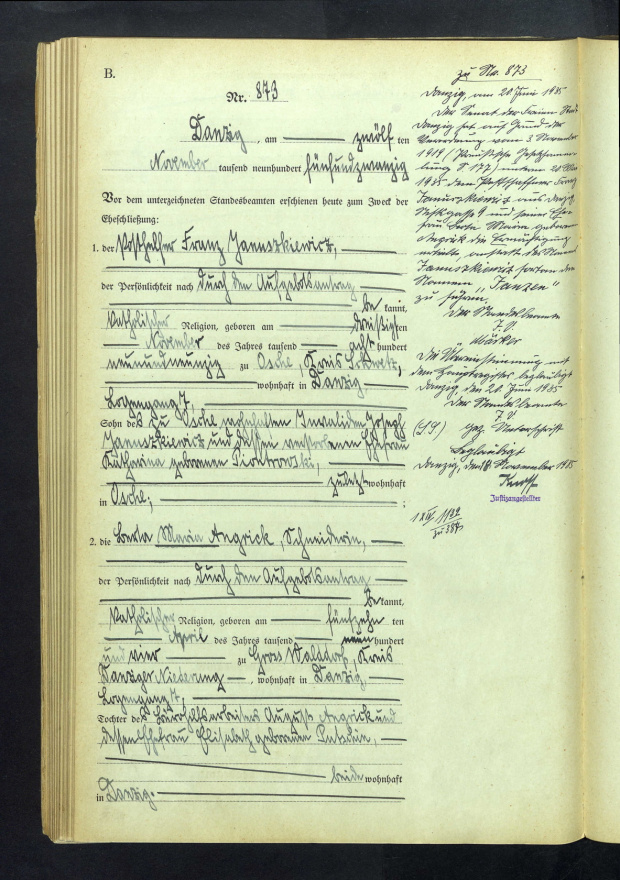 B.
Nr. 873
Danzig, am zwölf ten
November tausend neunhundert fünfundzwanzig
Vor dem unterzeichneten Standesbeamten erschienen heute zum Zweck der
Eheschließung:
1. der Posthelfer Franz Januszkiewicz,
der Persönlichkeit nach durch den Aufgebotsantrag
be kannt,
katholischer Religion, geboren am dreißigsten
November des Jahres tausend acht hundert
neunundneunzig zu Osche, Kreis Schwetz,
wohnhaft in Danzig
Logengang 7,
Sohn des zu Osche wohnhaften Invaliden Joseph
Januszkiewicz und dessen verstorbenen Ehefrau
Katharina geborenen Piontrowski,
zuletzt wohnhaft
in Osche;
2. die Berta Maria Angrick, Schneiderin,
der Persönlichkeit nach durch den Aufgebotsantrag
be kannt,
katholischer Religion, geboren am fünfzehn ten
April des Jahres tausend neun hundert
und vier zu Gross Walddorf, Kreis
Danziger Niederung, wohnhaft in Danzig,
Logengang 7,
Tochter des Bürohilfsarbeiters August Angrick und
dessen Ehefrau Elisabeth geborenen
beide wohnhaft
in Danzig.
zu No. 873
Danzig, am 20. Juni 1935
Der Senat der Freien Stadt
Danzig hat auf Grund der
Verordnung vom 3 November
1919 (Preußische Gesetzsamm-
lung S 177) unterm 20 Mai
1935 dem Postschaffner Franz
Januszkiewicz aus Danzig
9 und seiner Ehe-
frau Berta Maria geborenen
Angrick die Ermächtigung
erteilt, anstelle des Namens
Januszkiewicz fortan den
Namen "Janzen"
zu führen.
Der Standesbeamte
J. V.
Märker
Die Übereinstimmung mit
dem Hauptregister beglaubigt
Danzig, den 20. Juni 1935
Der Standesbeamte
J. V.
(LS) gez. Unterschrift
Beglaubigt
Danzig, den November 1935
Justizangestellter